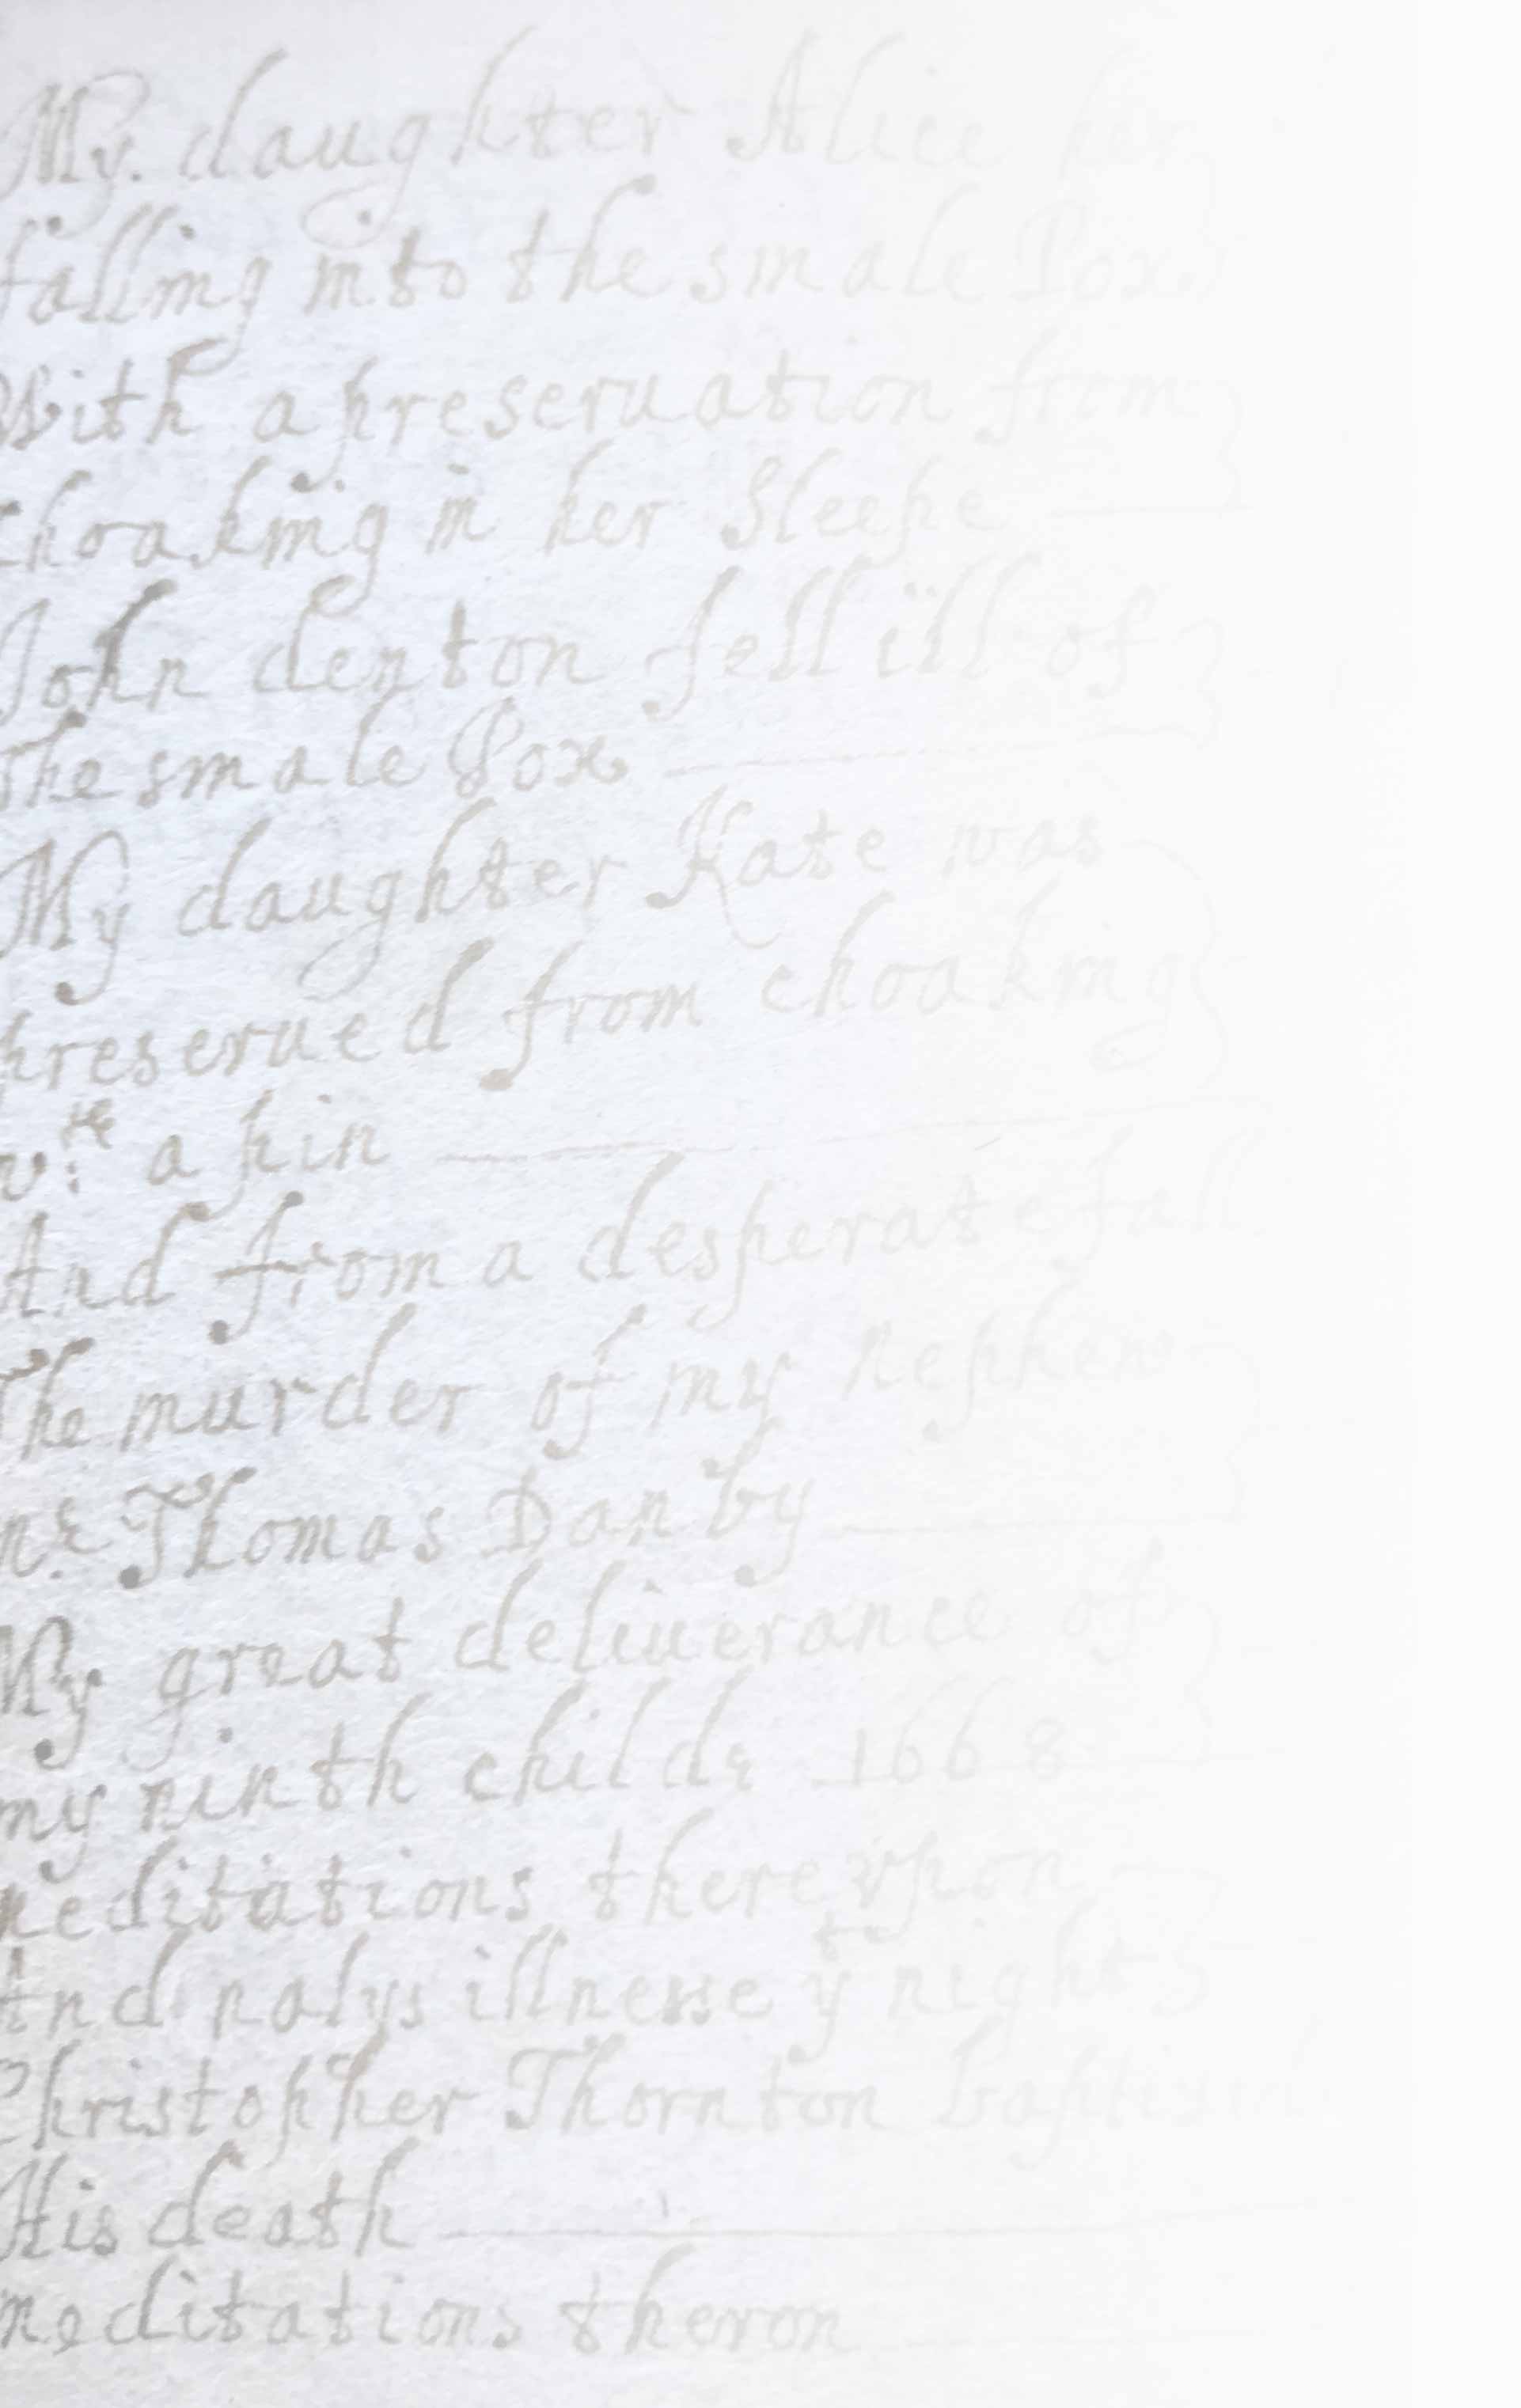 My daughter Alice her
falling into the smale Pox
With a preseruation from
choaking in her Sleepe
John denton fell ill of
the smale Pox
My daughter Kate was
preserued from choaking
wth a pin
And from a desperate fall
The murder of my Nephew
mr Thomas Danby
My great deliuerance of
my ninth childe 1668
meditations therevpon
And nalys illnesse yt night
Christopher Thornton baptized
His death
meditations theron